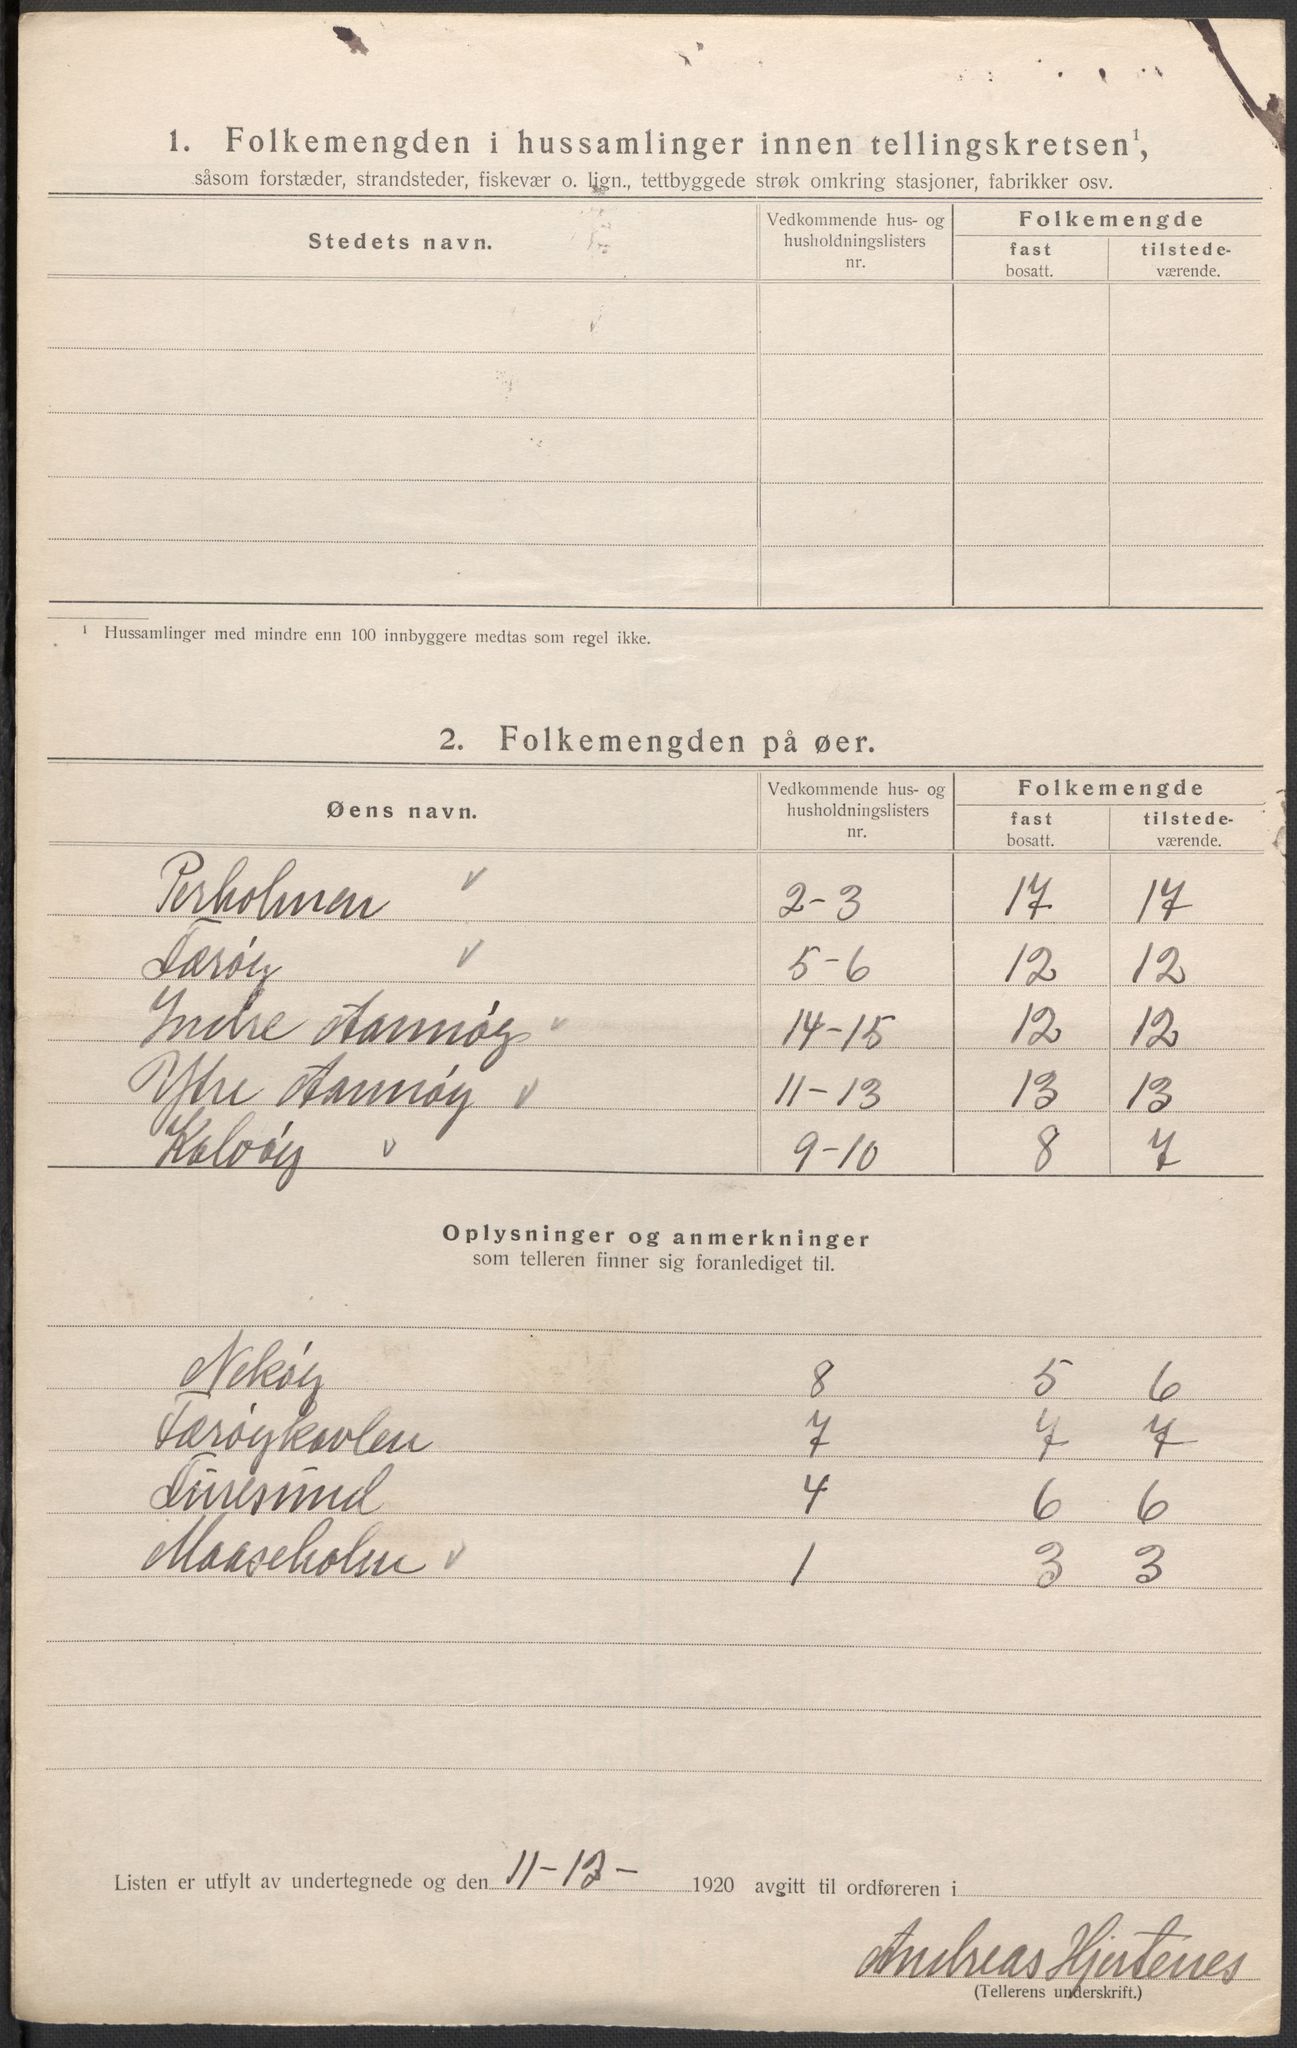 1. Folkemengden i hussamlinger innen tellingskretsen¹,
såsom forstæder, strandsteder, fiskevær o. lign., tettbyggede strøk omkring stasjoner, fabrikker osv.
Stedets navn.
Vedkommende hus- og
husholdningslisters
nr.
Folkemengde
fast
bosatt.
tilstede-
værende.
¹ Hussamlinger med mindre enn 100 innbyggere medtas som regel ikke.
2. Folkemengden på øer.
Øens navn.
Vedkommende hus- og
husholdningslisters
nr.
Folkemengde
fast
bosatt.
tilstede-
værende.
Perholmen v 2-3 17 17
Færøy v 5-6 12 12
Indre Aarmøy v 14-15 12 12
Ytre Aarmøy v 11-13 13 13
Kalvøy v 9-10 8 7
Oplysninger og anmerkninger
som telleren finner sig foranlediget til.
Nekøy 8 5 6
Færøykavlen 7 7 7
Furesund 4 6 6
Maaseholm v 1 3 3
Listen er utfylt av undertegnede og den 11-12- 1920 avgitt til ordføreren i
Andreas Hjertenes
(Tellerens underskrift.)